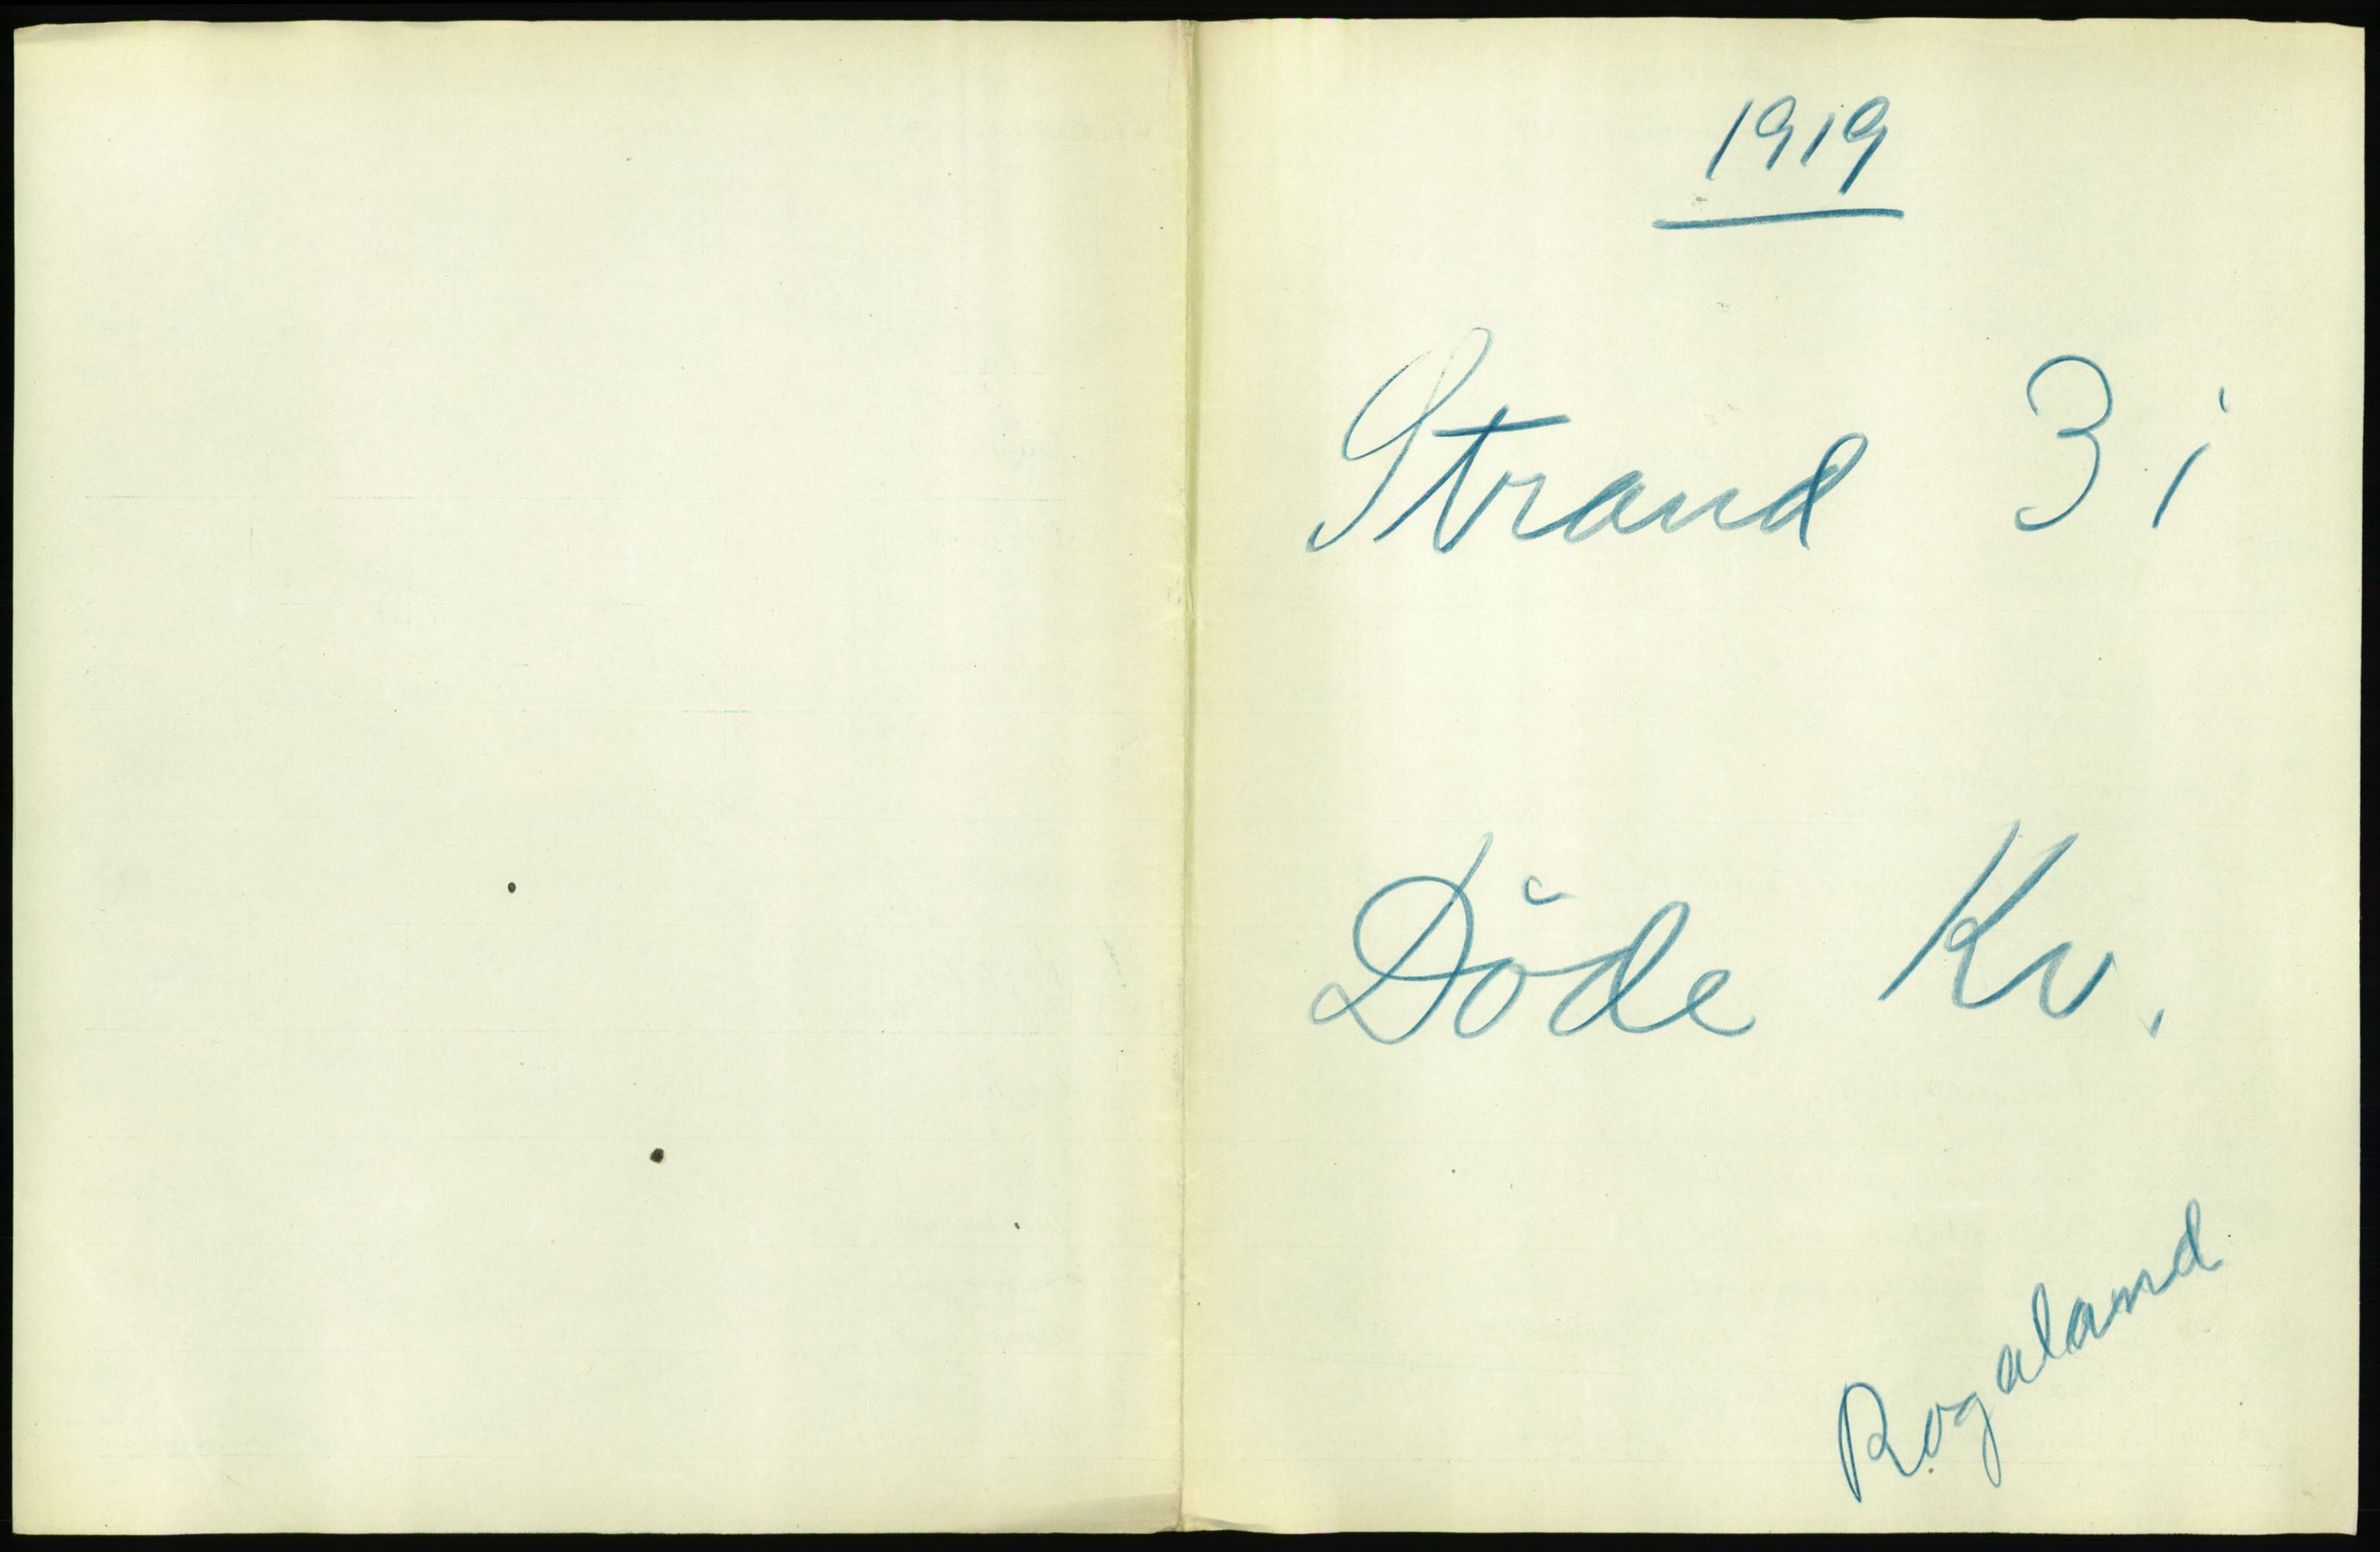 1919
Strand 3 i
Döde Kv.
Rogaland